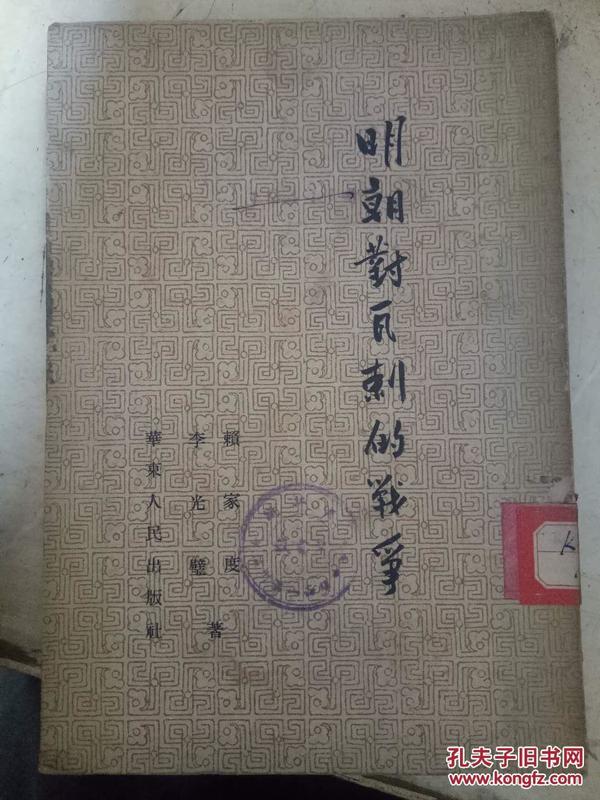 明朝對瓦剌的戰爭
賴家度
李光璧
著
華東人民出版社
孔夫子旧书网
www.kongfz.com